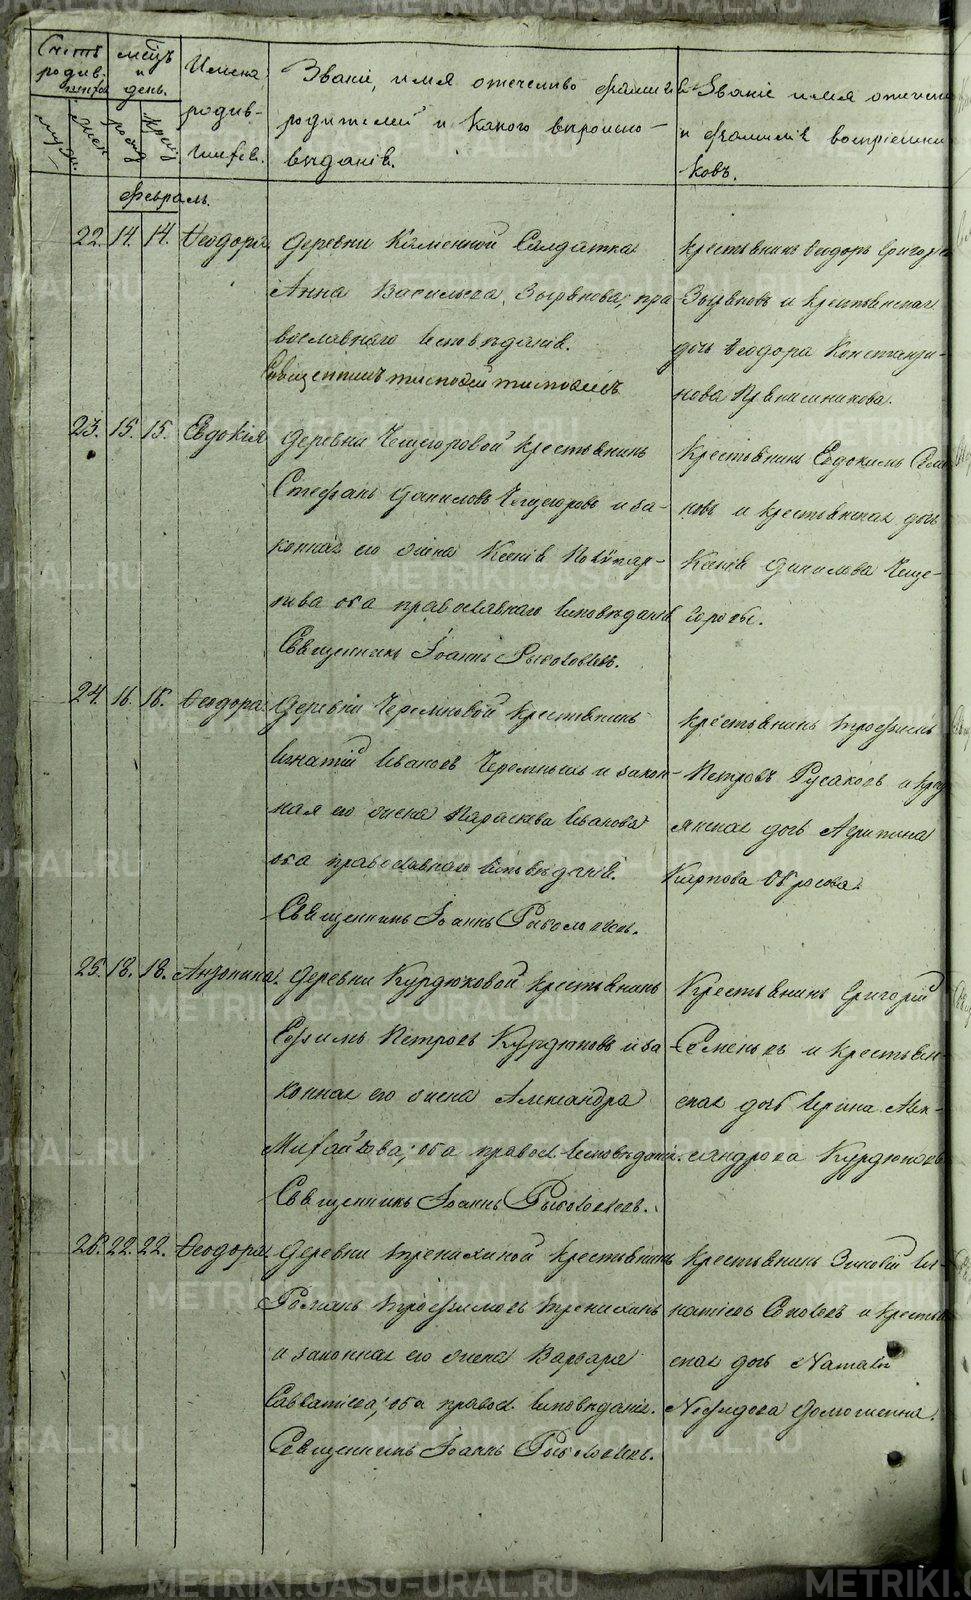 Счетъ родив-шихся
мѣсяцъ и день.
Имена родив-шихся.
Званіе, имя отчество фамилія
родителей и какого вѣроиспо-
вѣданія.
Званіе имя отчество
и фамилія воспріемни
ковъ.
муж.
жен
рожд
крещ
Февраль.
22. 14. 14. Ѳеодора
деревни Каменной Солдатка
Анна Васильева Зырянова, пра
вославнаго исповѣданія.
Священникъ
крестьянинъ Ѳеодоръ Григорь
Зыряновъ и крестьянская
дочь Ѳеодора Константи-
нова
23. 15. 15. Евдокія
деревни Чещегоровой крестьянинъ
Стефанъ Даниловъ Чещегоровъ и за-
конная его жена Ксенія Поликар-
пова оба православнаго исповѣданія
Священникъ Іоаннъ Рыболовлевъ.
Крестьянинъ Евдокимъ Семе
новъ и крестьянская дочь
Ксенія Данилова Чеще-
горовы.
24. 16. 16. Ѳеодора.
деревни Черемновой крестьянинъ
Игнатій Ивановъ Черемныхъ и закон-
ная его жена Параскева Иванова
оба православнаго исповѣданія.
Священникъ Іоаннъ Рыболовлевъ.
крестьянинъ Трофимъ
Петровъ Русаковъ и крес
янская дочь Агрипина
Карпова
25. 18. 18. Антонина.
деревни Курдюковой крестьянинъ
Ефимъ Петровъ Курдюковъ и за
конная его жена Александра
Михайлова; оба правос. исповѣданія.
Священникъ Іоаннъ Рыболовлевъ.
Крестьянинъ Григорій
Семеновъ и крестьян
ская дочь Ирина Алек-
сандрова Курдюковы
26. 22. 22. Ѳеодора.
деревни Тренихиной крестьянинъ
Романъ Трофимовъ Тренихинъ
и законная его жена Варвара
Савватиева; оба правос. исповѣданія.
Священникъ Іоаннъ Рыболовлевъ.
крестьянинъ Зиновій Иг-
натіевъ Соповъ и крестьян
ская дочь Наталія
METRIKI.GASO-URAL.RU